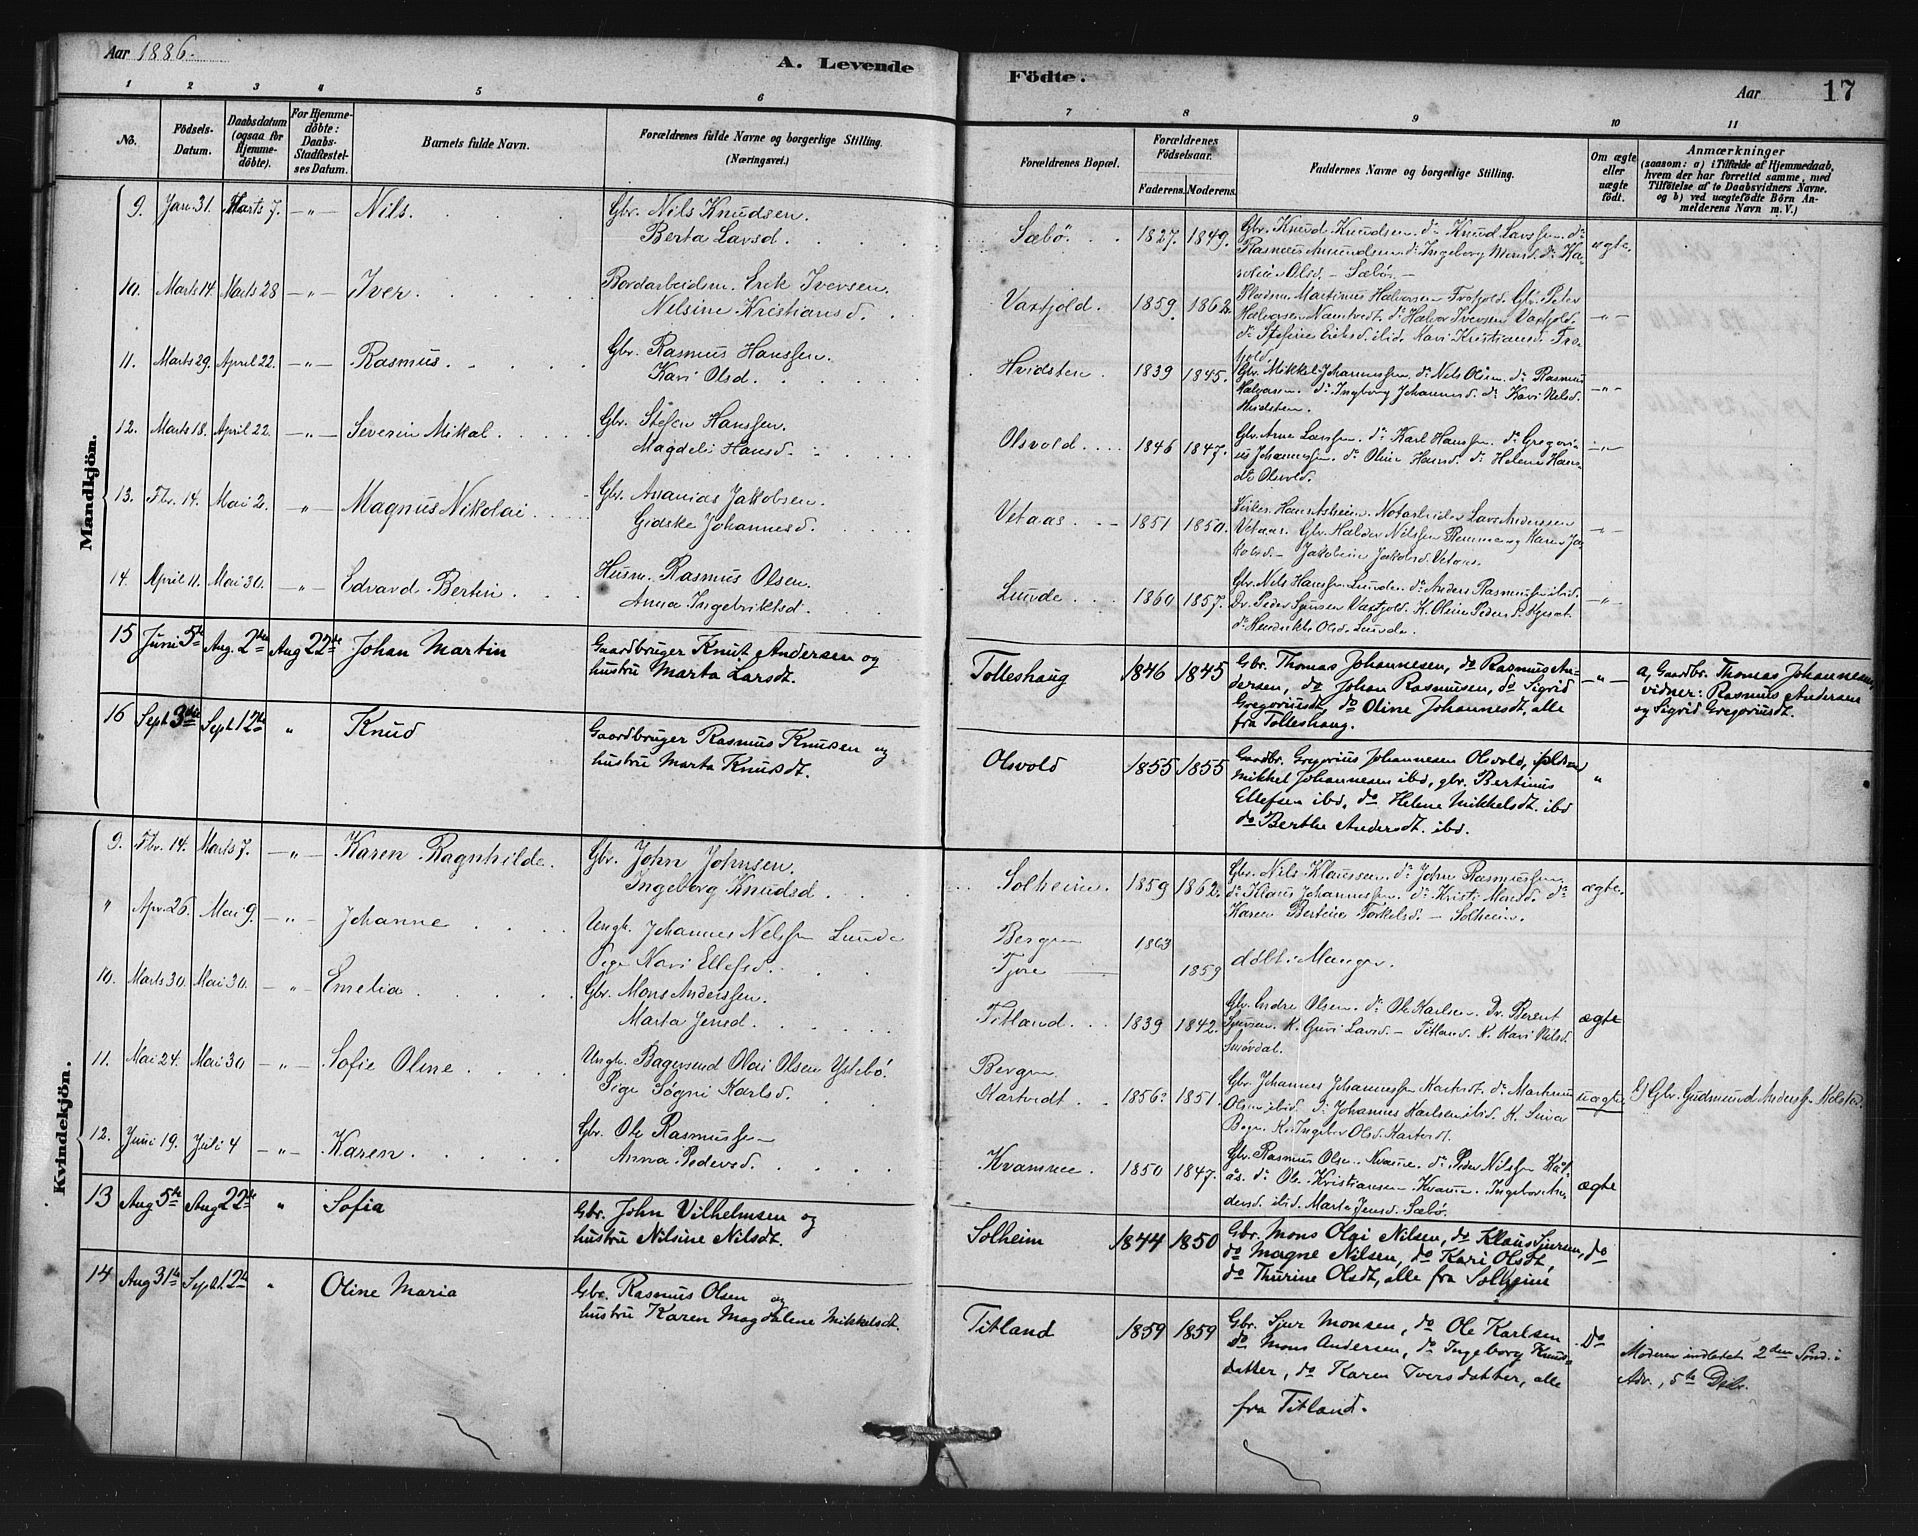 Aar 1886.
A. Levende
Födte.
Aar
17
1 2 3 4 5 6
7 8 9 10 11
No.
Födsels-
Datum.
Daabsdatum
(ogsaa for
Hjemme-
döbte).
For Hjemme-
döbte:
Daabs-
Stadfæstel-
ses Datum.
Barnets fulde Navn.
Forældrenes fulde Navne og borgerlige Stilling.
(Næringsvei.)
Forældrenes Bopæl.
Forældrenes
Födselsaar.
Faderens. Moderens.
Faddernes Navne og borgerlige Stilling.
Om ægte
eller
uægte
födt.
Anmærkninger
(saasom: a) i Tilfælde af Hjemmedaab,
hvem der har forrettet samme, med
Tilföielse af to Daabsvidners Navne.
og b) ved uægtefödte Börn An-
melderens Navn m. V.)
Mandkjön.
9. Jan. 31. Marts 7. —"— Nils. Gbr. Nils Knudsen.
Berta Larsd.
Sæbö. 1827. 1849. Gbr. Knud Knudsen. do Knud Larssen. do
Rasmus Amundsen do Ingeborg Monsd. do Ka-
Olsd. — Sæbö. —
ægte
10. Marts 14. Marts 28 —"— Iver. Bordarbeidsm. Erik Iversen.
Nelsine Kristiansd.
Vaxfjold. 1859. 1862. Pladsm. Martinus Halvorsen Gbr. Peter
Halvorsen Namtvedt. do Halvor Iversen Vaxfjold.
do Stefine Eriksd. ibid. Mari Kristiansd.
—"—
11. Marts 29. April 22. —"— Rasmus. Gbr. Rasmus Hanssen.
Kari Olsd.
Hvidsten. 1839 1845. Gbr. Mikkel Johannessen. do Nels Olsen. do Rasmus
Halvorsen. do Ingborg Johannesd. do Kari Nelsd.
Hvidsten.
—"—
12. Marts 18. April 22. —"— Severin Mikal. Gbr. Stefen Hanssen.
Magdeli Hansd.
Olsvold. 1846 1847. Gbr. Arne Larssen. do Karl Hanssen. do Gregori-
us Johannessen. do Oline Hansd. do Helene Hans-
dt. Olsvold.
—"—
13. Fbr. 14. Mai 2. —"— Magnus Nikolai Gbr. Ananias Jakobsen.
Gidske Johannesd.
Vetaas. 1851 1850. Kirkes. Hans Askeim. Notarbeider Lars Anderssen
Vetaas. Gbr. Halvor Nilssen og Karen Ja-
kobsd. — Jakobine Jakobsd. Vetaas.
—"—
14. April 11. Mai 30. —"— Edvard Bertin. Husm. Rasmus Olsen.
Anna Ingebriktsd.
Lunde. 1860 1857. Gbr. Nils Hanssen Lunde. do Anders Rasmussen ibid.
Dr. Peder Sjursen Vaxfjold. K. Oline Pedersd.
do Hendrikke Olsd. Lunde.
—"—
15 Juni 5te Aug. 2den Aug 22de Johan Martin Gaardbruger Knut Andersen og
hustru Marta Larsdt.
Tolleshaug 1846 1845 Gbr. Thomas Johannesen, do Rasmus An-
dersen, do Johan Rasmusen, do Sigrid
Gregoriusdt, do Oline Johannesdt, alle
fra Tolleshaug.
—"—
a, Gaardbr. Thomas Johannesen,
vidner: Rasmus Andersen
og Sigrid Gregoriusdt.
16 Sept 3die Sept 12te " Knud Gaardbruger Rasmus Knusen og
hustru Marta Knusdt.
Olsvold 1855 1855 Gaardbr. Gregorius Johannesen Olsvold,
Mikkel Johannesen ibd, gbr. Bertinus
Ellefsen ibd, do Helene Mikkelsdt. ibd
do Berthe Andersdt. ibd.
"
Kvindekjön.
9. Fbr. 14. Marts 7. —"— Karen Ragnhilde. Gbr. John Johnsen.
Ingeborg Knudsd.
Solheim. 1859 1862. Gbr. Nils Klaussen. do John Rasmussen.
do Klaus Johannessen. do Kristi Monsd. do
Karen Bertine Torkelsd. — Solheim.
ægte.
" Apr. 26. Mai 9. —"— Johanne Ungk. Johannes Nelssen Lunde
Pige Kari Ellefsd.
Bergen 1863
Tjore 1859
döbt i Manger.
10. Marts 30. Mai 30. —"— Emelia Gbr. Mons Anderssen.
Marta Jensd.
Titland. 1839 1842. Gbr. Endre Olsen. do Ole Karlsen. Dr. Berent
Sjursen. K. Guri Larsd. — Titland. K. Kari Nilsd.
Smördal.
ægte
11. Mai 24. Mai 30 —"— Sofie Oline Ungk. Bagersvend Olai Olsen Ystebö.
Pige Sögni Karlsd.
Bergen
Kartvedt 1856? 1851. Gbr. Johannes Johannessen Kartvedt. do Markus
Olsen ibid. do Johannes Karlsen ibid. K.
K. Ingebor Olsd. Kartvedt.
uægte
Gbr. Gudmund Anderssen
12. Juni 19. Juli 4 —"— Karen. Gbr. Ole Rasmussen
Anna Pedersd.
Kvamme. 1850 1847. Gbr. Rasmus Olsen Kvamme. do Peder Nilssen
ås. do Ole Kristiansen Kvamme. Ingebor An-
dersd. ibid. Marta Jensd. Sæbö.
ægte
13 Aug 5te Aug 22de " Sofia Gbr. John Vilhelmsen og
hustru Nilsine Nilsdt.
Solheim 1844 1850 Gbr. Mons Olai Nilsen, do Klaus Sjursen,
do Magne Nilsen, do Kari Olsdt,
do Thurine Olsdt, alle fra Solheim
do
14 Aug 31te Sept 12te " Oline Maria Gbr. Rasmus Olsen og
hustru Karen Magdalene Mikkelsdt.
Titland 1859 1859 Gbr. Sjur Monsen, do Ole Karlsen
do Mons Andersen, do Ingeborg Knuds-
datter, do Karen Iversdatter, alle
fra Titland.
Do
Moderen indledet 2den Sönd. i
Adv., 5te Dsbr.